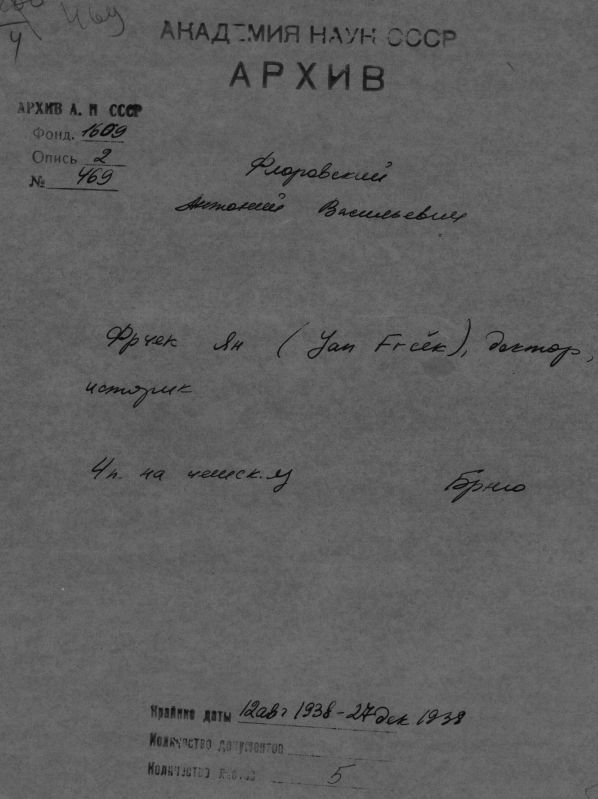 469
4
АКАДЕМИЯ НАУК СССР
АРХИВ
АРХИВ А. Н СССР
Фонд. 1609
Опись 2
№ 469
Флоровский
Антоний Васильевич
Фрчек Ян (Jan Frček), доктор,
историк
4 п. на чешск. яз
Брно
Крайние даты 12 авг 1938 - 27 дек 1938
Количество документов
Количество листов 5